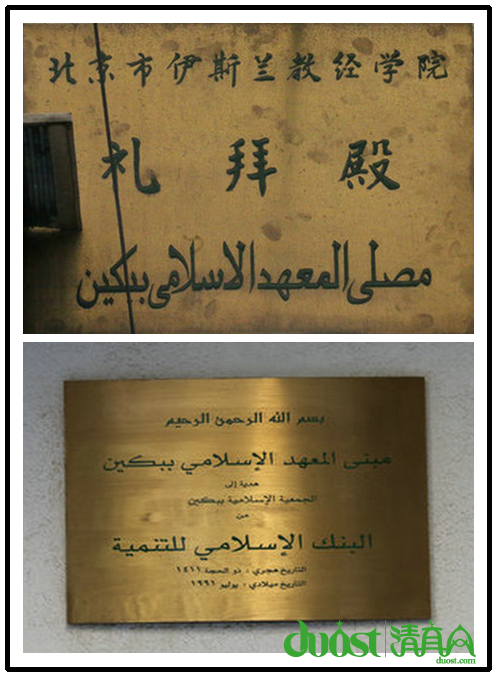 北京市伊斯兰教经学院
礼拜殿
مصلى المعهد الاسلامى ببكين
بسم الله الرحمن الرحيم
مبنى المعهد الإسلامي ببكين
هدية إلى
الجمعية الإسلامية ببكين
من
البنك الإسلامي للتنمية
التاريخ هجري : ذو الحجة ١٤١١
التاريخ ميلادي : يوليو ١٩٩١
duost 清真人
duost.com